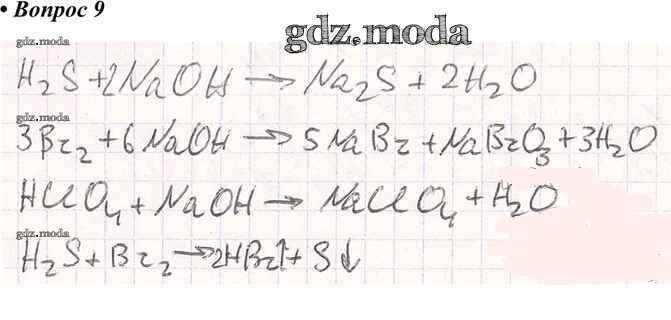 • Вопрос 9
gdz.moda
gdz.moda
H₂S + 2NaOH → Na₂S + 2H₂O
gdz.moda
3Br₂ + 6NaOH → 5NaBr + NaBrO₃ + 3H₂O
HClO₄ + NaOH → NaClO₄ + H₂O
gdz.moda
H₂S + Br₂ → 2HBr↑ + S↓